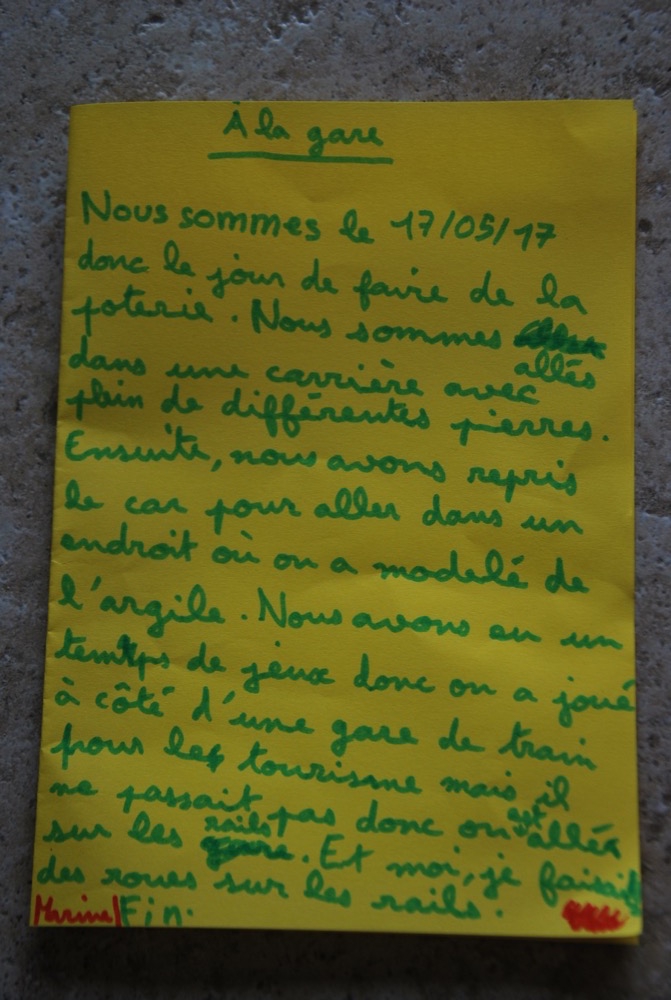 À la gare
Nous sommes le 17/05/17
donc le jour de faire de la
poterie. Nous sommes
allés
dans une carrière avec
plein de différentes pierres.
Ensuite, nous avons repris
le car pour aller dans un
endroit où on a modelé de
l'argile. Nous avons eu un
temps de jeux donc on a joué
à côté d'une gare de train
pour le tourisme mais il
ne passait pas donc on est allés
sur les rails. Et moi, je faisais
des roues sur les rails.
Marine Fin.